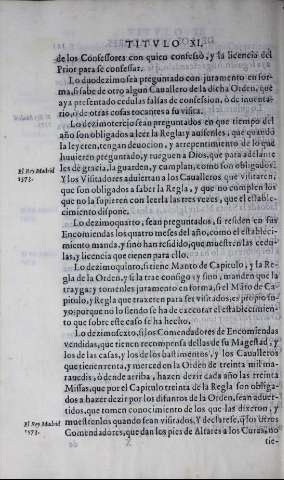 TITVLO XI.
de los Confessores con quien confessò, y la licencia del
Prior para se confessar.
Lo duodezimo seà preguntado con juramento en for-
ma, si sabe de otro algun Cauallero de la dicha Orden, que
aya presentado cedulas falsas de confession, ò de inuenta-
rio, ò de otras cosas tocantes a su visita.
Lo dezimotercio sean preguntados en que tiempo del
año son obligados a leer la Regla: y auisenles, que quando
la leyeren, tengan deuocion, y arrepentimiento de lo que
huuieren preguntado, y rueguen a Dios, que para adelante
les dè gracia, la guarden, y cumplan, como son obligados:
El Rey Madrid
1573.
Y los Visitadores aduiertan a los Caualleros que visitaren,
que son obligados a saber la Regla, y que no cumplen los
que no la supieren con leerla las tres vezes, que el estable-
cimiento dispone.
Lo dezimoquarto, sean preguntados, si residen en sus
Encomiendas los quatro meses del año, como el estableci-
miento manda, y sino han residido, que muestren las cedu-
las, y licencia que tienen para ello.
Lo dezimoquinto, si tiene Manto de Capitulo, y la Re-
gla de la Orden, y si la trae consigo y sino, manden que la
trayga: y tomenles juramento en forma, si el Mãto de Ca-
pitulo, y Regla que traxeren para ser visitados, es propio su-
yo: porque no lo siendo se ha de executar el establecimien-
to que sobre este caso se ha hecho.
Lo dezimosexto, si los Comendadores de Encomiendas
vendidas, que tienen recompensa dellas de su Magestad, y
los de las casas, y los de los bastimentos, y los Caualleros
que tienen renta, y merced en la Orden de treinta mil ma-
rauedis, ò dende arriba, hazen dezir cada año las treinta
Missas, que por el Capitulo treinta de la Regla son obliga-
dos a hazer dezir por los difuntos de la Orden, sean aduer-
tidos, que tomen conocimiento de los que las dixeron, y
El Rey Madrid
1573.
muestrenlos quando sean visitados. Y declarese, q̃ los otros
Comendadores, que dan los pies de Altares a los Curas, no
tie-